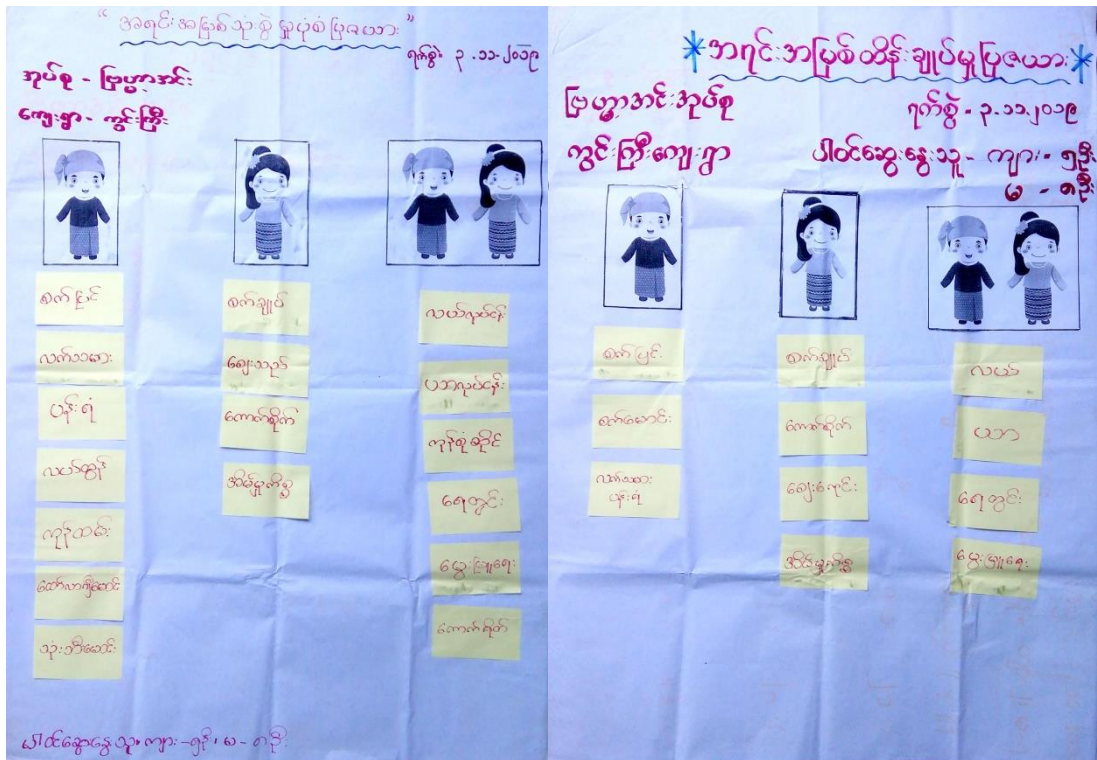 “ အရင်းအမြစ်သုံးစွဲမှုပုံစံပြဇယား ”
ရက်စွဲ၊ ၃.၁၁.၂၀၁၉
အုပ်စု - ဗြဟ္မာအင်း
ကျေးရွာ - ကွင်းကြီး
စက်ပြင်
လက်သမား
ပန်းရံ
လယ်ထွန်
ကုန်ထမ်း
ထော်လာဂျီမောင်း
သုံးဘီးမောင်း
စက်ချုပ်
ဈေးသည်
ကောက်စိုက်
အိမ်မှုကိစ္စ
လယ်လုပ်ငန်း
ယာလုပ်ငန်း
ကုန်စုံဆိုင်
ရေတွင်း
မွေးမြူရေး
ကောက်ရိတ်
ပါဝင်ဆွေးနွေးသူ၊ ကျား - ၅ဦး၊ မ - ၈ဦး
အရင်းအမြစ်ထိန်းချုပ်မှုပြဇယား
ဗြဟ္မာအင်းအုပ်စု
ရက်စွဲ - ၃.၁၁.၂၀၁၉
ကွင်းကြီးကျေးရွာ
ပါဝင်ဆွေးနွေးသူ - ကျား - ၅ဦး
မ - ၈ဦး
စက်ပြင်
စက်မောင်း
လက်သမား
ပန်းရံ
စက်ချုပ်
ကောက်စိုက်
ဈေးရောင်း
အိမ်မှုကိစ္စ
လယ်
ယာ
ရေတွင်း
မွေးမြူရေး